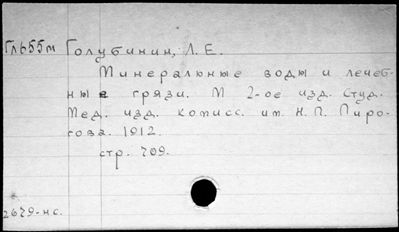 Гл655м Голубинин, Л. Е.
Минеральные воды и лечеб-
ные грязи. М 2-ое изд. Студ.
Мед. изд. комисс. им. Н. П. Пиро-
гова. 1912.
стр. 709.
2679-нс.